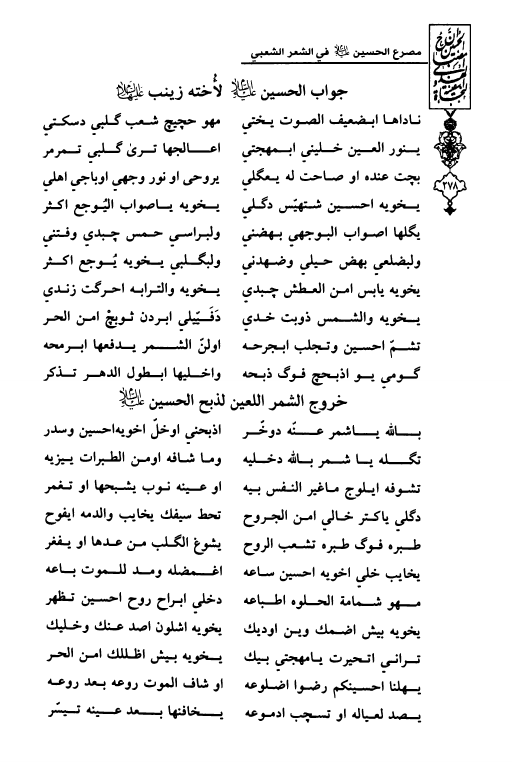 مصرع الحسين عليه السلام في الشعر الشعبي
٢٧٨
جواب الحسين عليه السلام لأُخته زينب عليها السلام
ناداها ابضعيف الصوت يختي مهو حجيج شعب گلبي دسكتي
ينور العين خليني ابمهجتي اعالجها ترىٰ گلبي تمرمر
بچت عنده او صاحت له يعگلي يروحى او نور وجهي اوباجي اهلي
يخويه احسين شتهيّس دگلي يخويه ياصواب اليُوجع اكثر
يگلها اصواب البوجهي بهضني ولبراسي حمس چبدي وفتني
ولبضلعي بهض حيلي وضهدني ولبگلبي يخويه يُوجع اكثر
يخويه يابس امن العطش چبدي يخويه والترابه احرگت زندي
يخويه والشمس ذوبت خدي دَفَيّيلي ابردن ثوبچ امن الحر
تشمّ احسين وتجلب ابجرحه اولنّ الشمر يدفعها ابرمحه
گومي يو اذبحچ فوگ ذبحه واخليها ابطول الدهر تذكر
خروج الشمر اللعين لذبح الحسين عليه السلام
بالله ياشمر عنّه دوخّر اذبحني اوخلّ اخويه‌احسين وسدر
تگله يا شمر بالله دخليه وما شافه اومن الطبرات بيزيه
تشوفه ايلوج ماغير النفس بيه او عينه نوب يشبحها او تغمر
دگلي ياكتر خالي امن الجروح تحط سيفك يخايب والدمه ايفوح
طبره فوگ طبره تشعب الروح يشوغ الگلب من عدها او يفغر
يخايب خلي اخويه احسين ساعه اغمضله ومد للموت باعه
مهو شمامة الحلوه اطباعه دخلي ابراح روح احسين تظهر
يخويه بيش اضمك وين اوديك يخويه اشلون اصد عنك وخليك
تراني اتحيرت يامهجتي بيك يخويه بيش اظللك امن الحر
يهلنا احسينكم رضوا اضلوعه او شاف الموت روعه بعد روعه
يصد لعياله او تسچب ادموعه يخافنها بعد عينه تيسّر